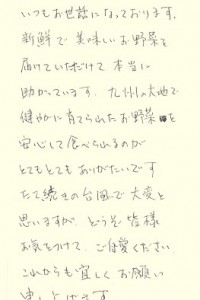 いつもお世話になっております。
新鮮で美味しいお野菜を
届けていただけて、本当に
助かっています。九州の大地で
健やかに育てられたお野菜を
安心して食べられるのが
とてもとてもありがたいです
たて続きの台風で大変と
思いますが、どうぞ皆様
お気をつけて、ご自愛ください。
これからも宜しくお願い
申し上げます